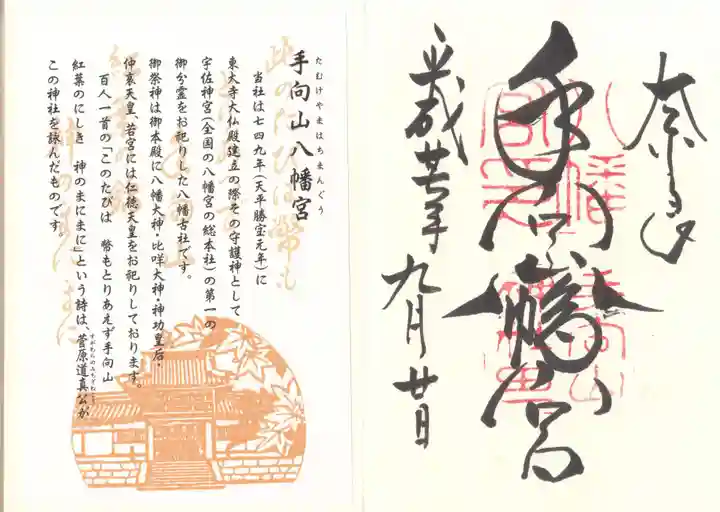 奈良
手向山八幡宮
平成廿七年九月廿日
手向山八幡宮
たむけやまはちまんぐう
当社は七四九年(天平勝宝元年)に
東大寺大仏殿建立の際その守護神として
宇佐神宮(全国の八幡宮の総本社)の第一の
御分霊をお祀りした八幡古社です。
御祭神は御本殿に八幡大神・比咩大神・神功皇后・
仲哀天皇、若宮には仁徳天皇をお祀りしております。
百人一首の「このたびは 幣もとりあえず手向山
紅葉のにしき 神のまにまに」という詩は、菅原道真公が
すがわらのみちざねこう
この神社を詠んだものです。